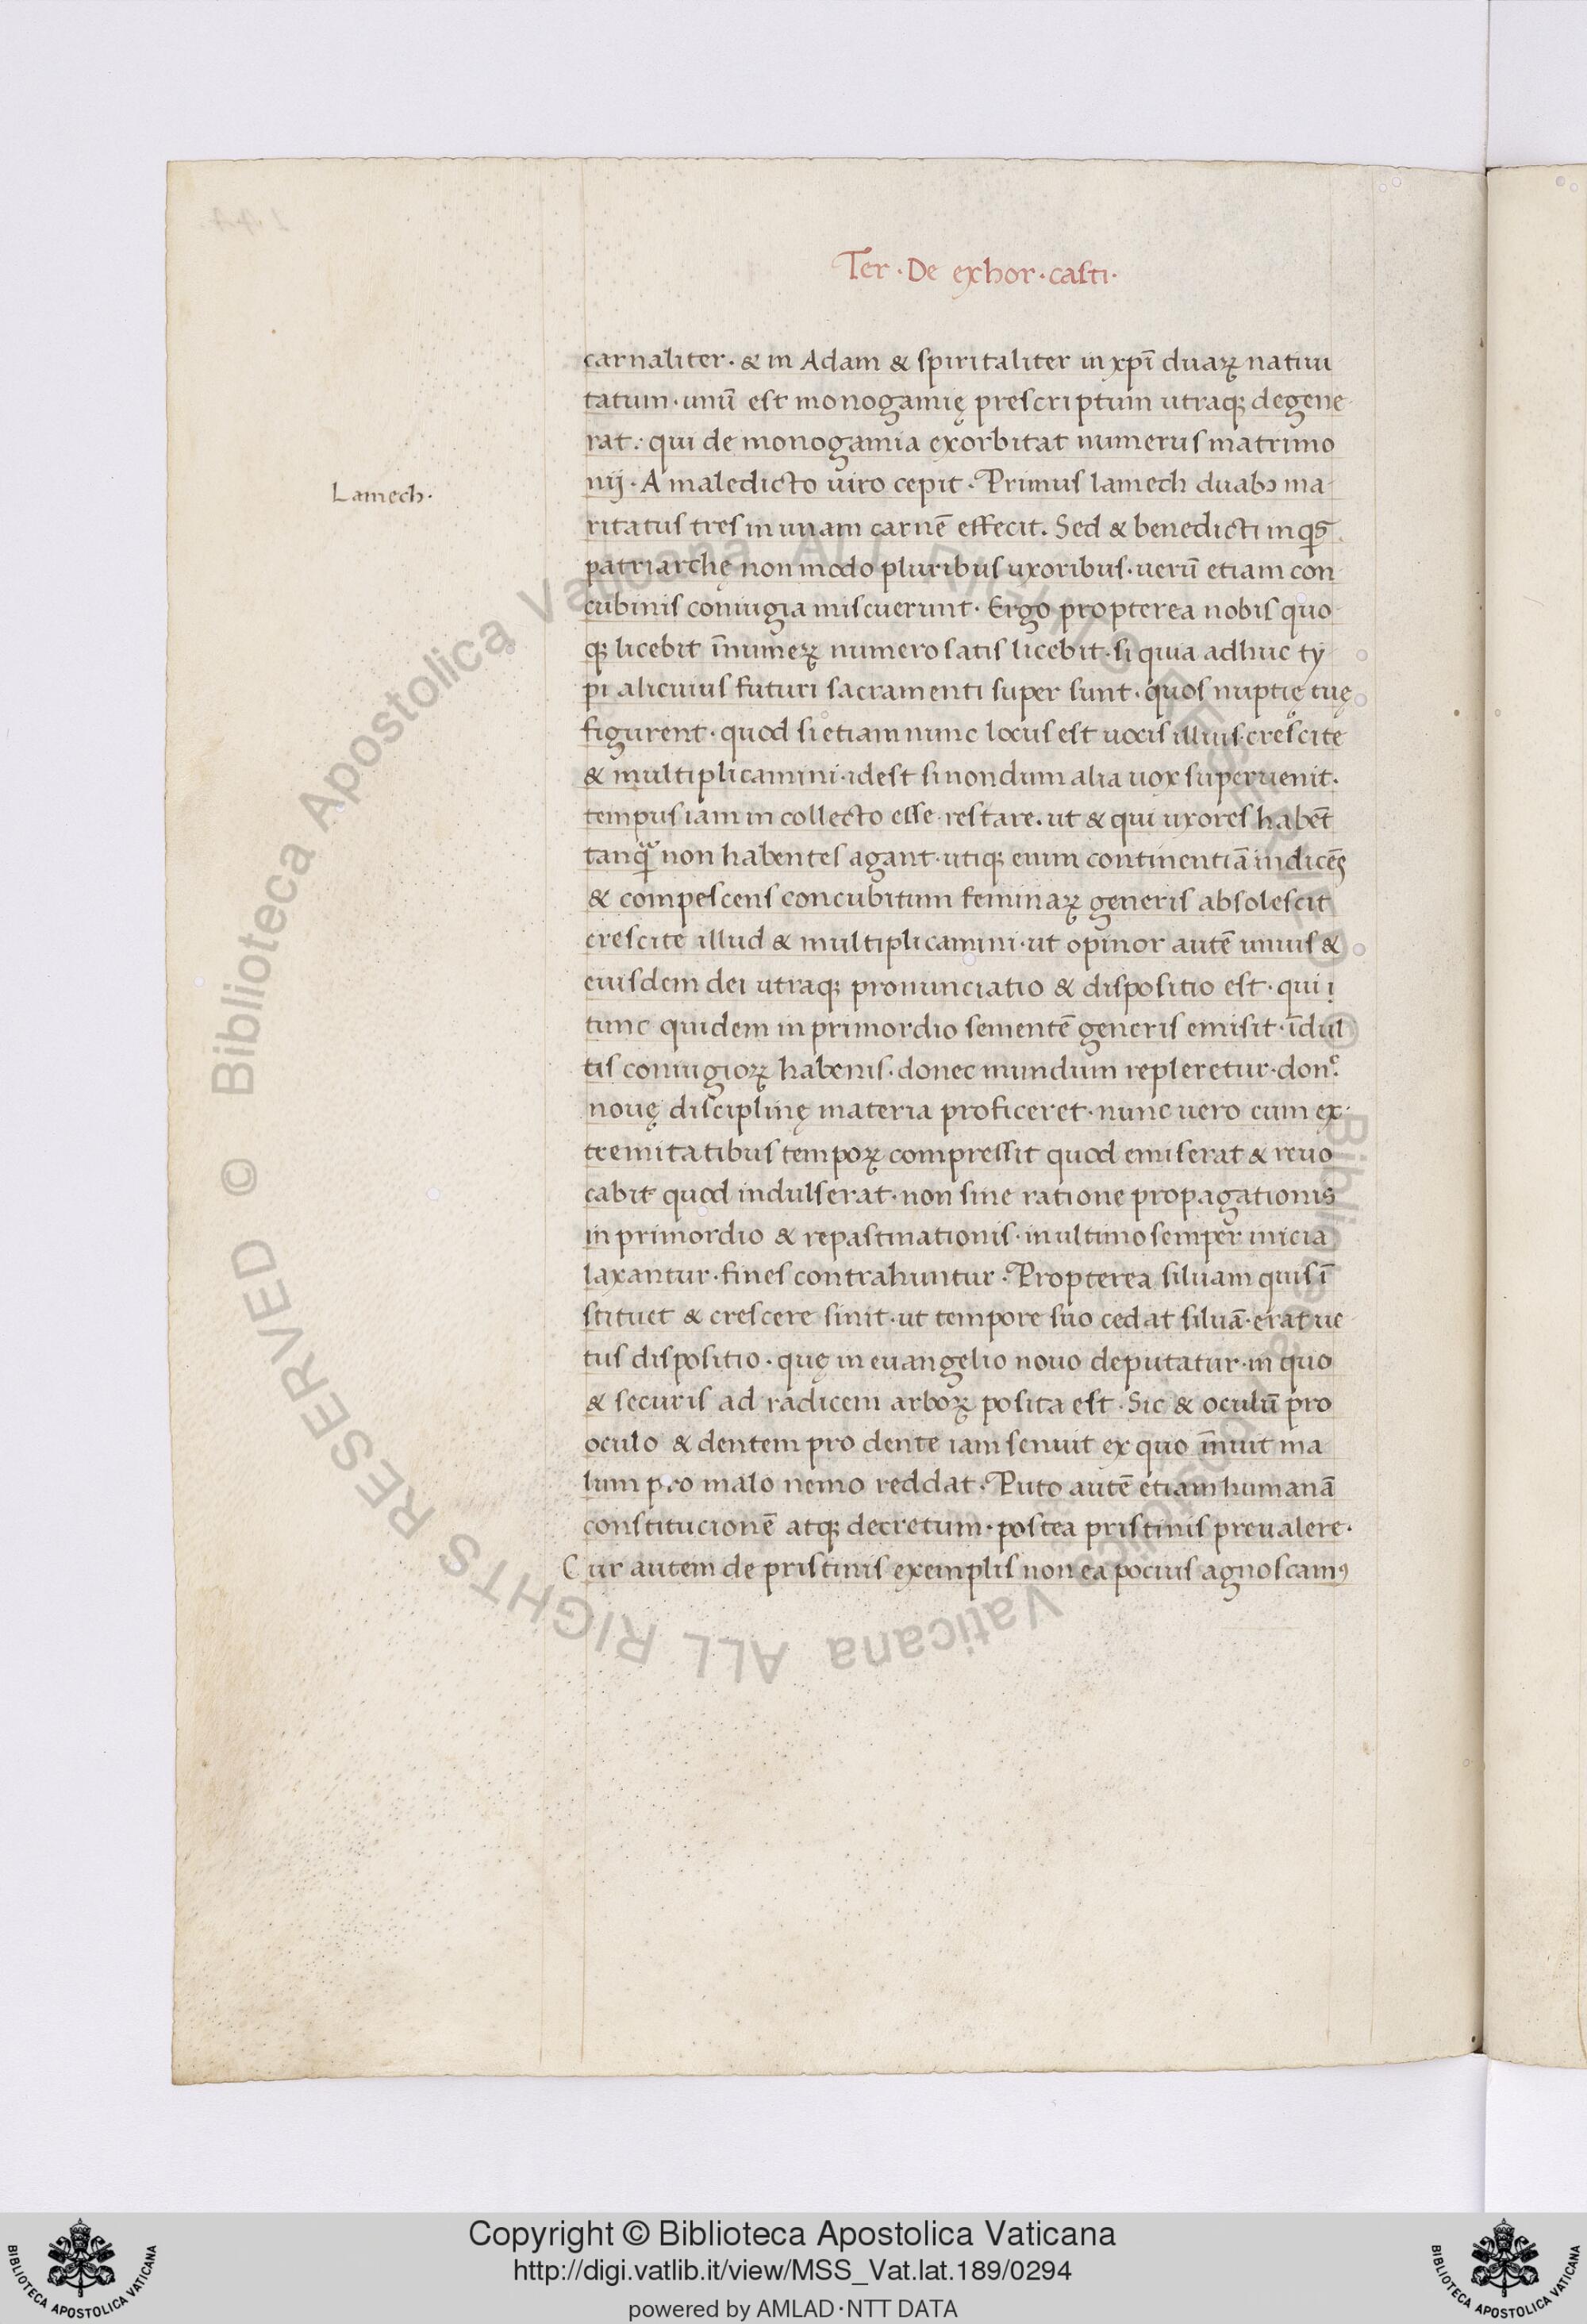 Ter · De exhor · casti ·
carnaliter · & in Adam & spiritaliter in xp̄i duaꝝ natiui
tatum · unū est monogamię prescriptum utraqꝫ degene
rat : qui de monogamia exorbitat numerus matrimo
nij · A maledicto uiro cepit · Primus lamech duabꝰ ma
Lamech ·
ritatus tres in unam carnē effecit. Sed & benedicti inqͥs
patriarchę non modo pluribus uxoribus · uerū etiam con
cubinis coniugia miscuerunt · Ergo propterea nobis quo
qꝫ licebit īnumeꝝ numero satis licebit · si quia adhuc ty
pi alicuius futuri sacramenti super sunt · quos nuptię tuę
figurent · quod si etiam nunc locus est uocis illius crescite
& multiplicamini · idest si nondum alia uox superuenit ·
tempus iam in collecto esse restare. ut & qui uxores habēt
tanqᷓ non habentes agant · utiqꝫ enim continentiā indicēs
& compescens concubitum feminaꝝ generis absolescit
crescite illud & multiplicamini · ut opinor autē unius &
eiusdem dei utraqꝫ pronunciatio & dispositio est · qui i
tunc quidem in primordio sementē generis emisit · īdul
tis coniugioꝝ habenis · donec mundum repleretur · donᶜ
nouę disciplinę materia proficeret · nunc uero cum ex
tremitatibus tempoꝝ compressit quod emiserat & reuo
cabit quod indulserat · non sine ratione propagationis
in primordio & repastinationis · in ultimo semper inicia
laxantur · fines contrahuntur · Propterea siluam quis ī
stituet & crescere sinit · ut tempore suo cedat siluā · erat ue
tus dispositio · quę in euangelio nouo deputatur · in quo
& securis ad radicem arboꝝ posita est · Sic & oculū pro
oculo & dentem pro dente iam senuit ex quo īnuit ma
lum pro malo nemo reddat · Puto autē etiam humanā
constitucionē atqꝫ decretum · postea pristinis preualere ·
Cur autem de pristinis exemplis non ea pocius agnoscamꝰ
© Biblioteca Apostolica Vaticana ALL RIGHTS RESERVED © Biblioteca Apostolica Vaticana ALL RIGHTS RESERVED
Copyright © Biblioteca Apostolica Vaticana
http://digi.vatlib.it/view/MSS_Vat.lat.189/0294
powered by AMLAD · NTT DATA
BIBLIOTECA APOSTOLICA VATICANA
BIBLIOTECA APOSTOLICA VATICANA